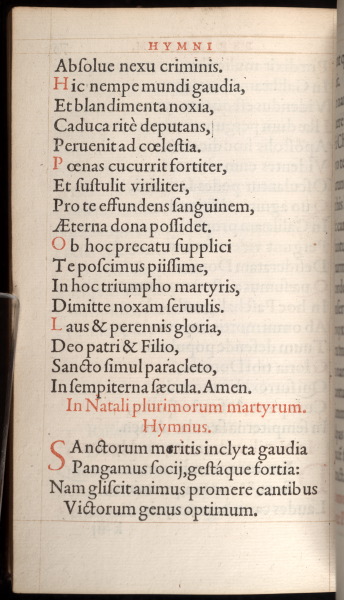 HYMNI
Abſolue nexu criminis.
Hic nempe mundi gaudia,
Et blandimenta noxia,
Caduca ritè deputans,
Peruenit ad cœleſtia.
Pœnas cucurrit fortiter,
Et ſuſtulit viriliter,
Pro te effundens ſanguinem,
Æterna dona poſſidet.
Ob hoc precatu ſupplici
Te poſcimus piiſſime,
In hoc triumpho martyris,
Dimitte noxam ſeruulis.
Laus & perennis gloria,
Deo patri & Filio,
Sancto ſimul paracleto,
In ſempiterna ſæcula. Amen.
In Natali plurimorum martyrum.
Hymnus.
SAnctorum meritis inclyta gaudia
Pangamus ſocij, geſtáque fortia:
Nam gliſcit animus promere cantibus
Victorum genus optimum.